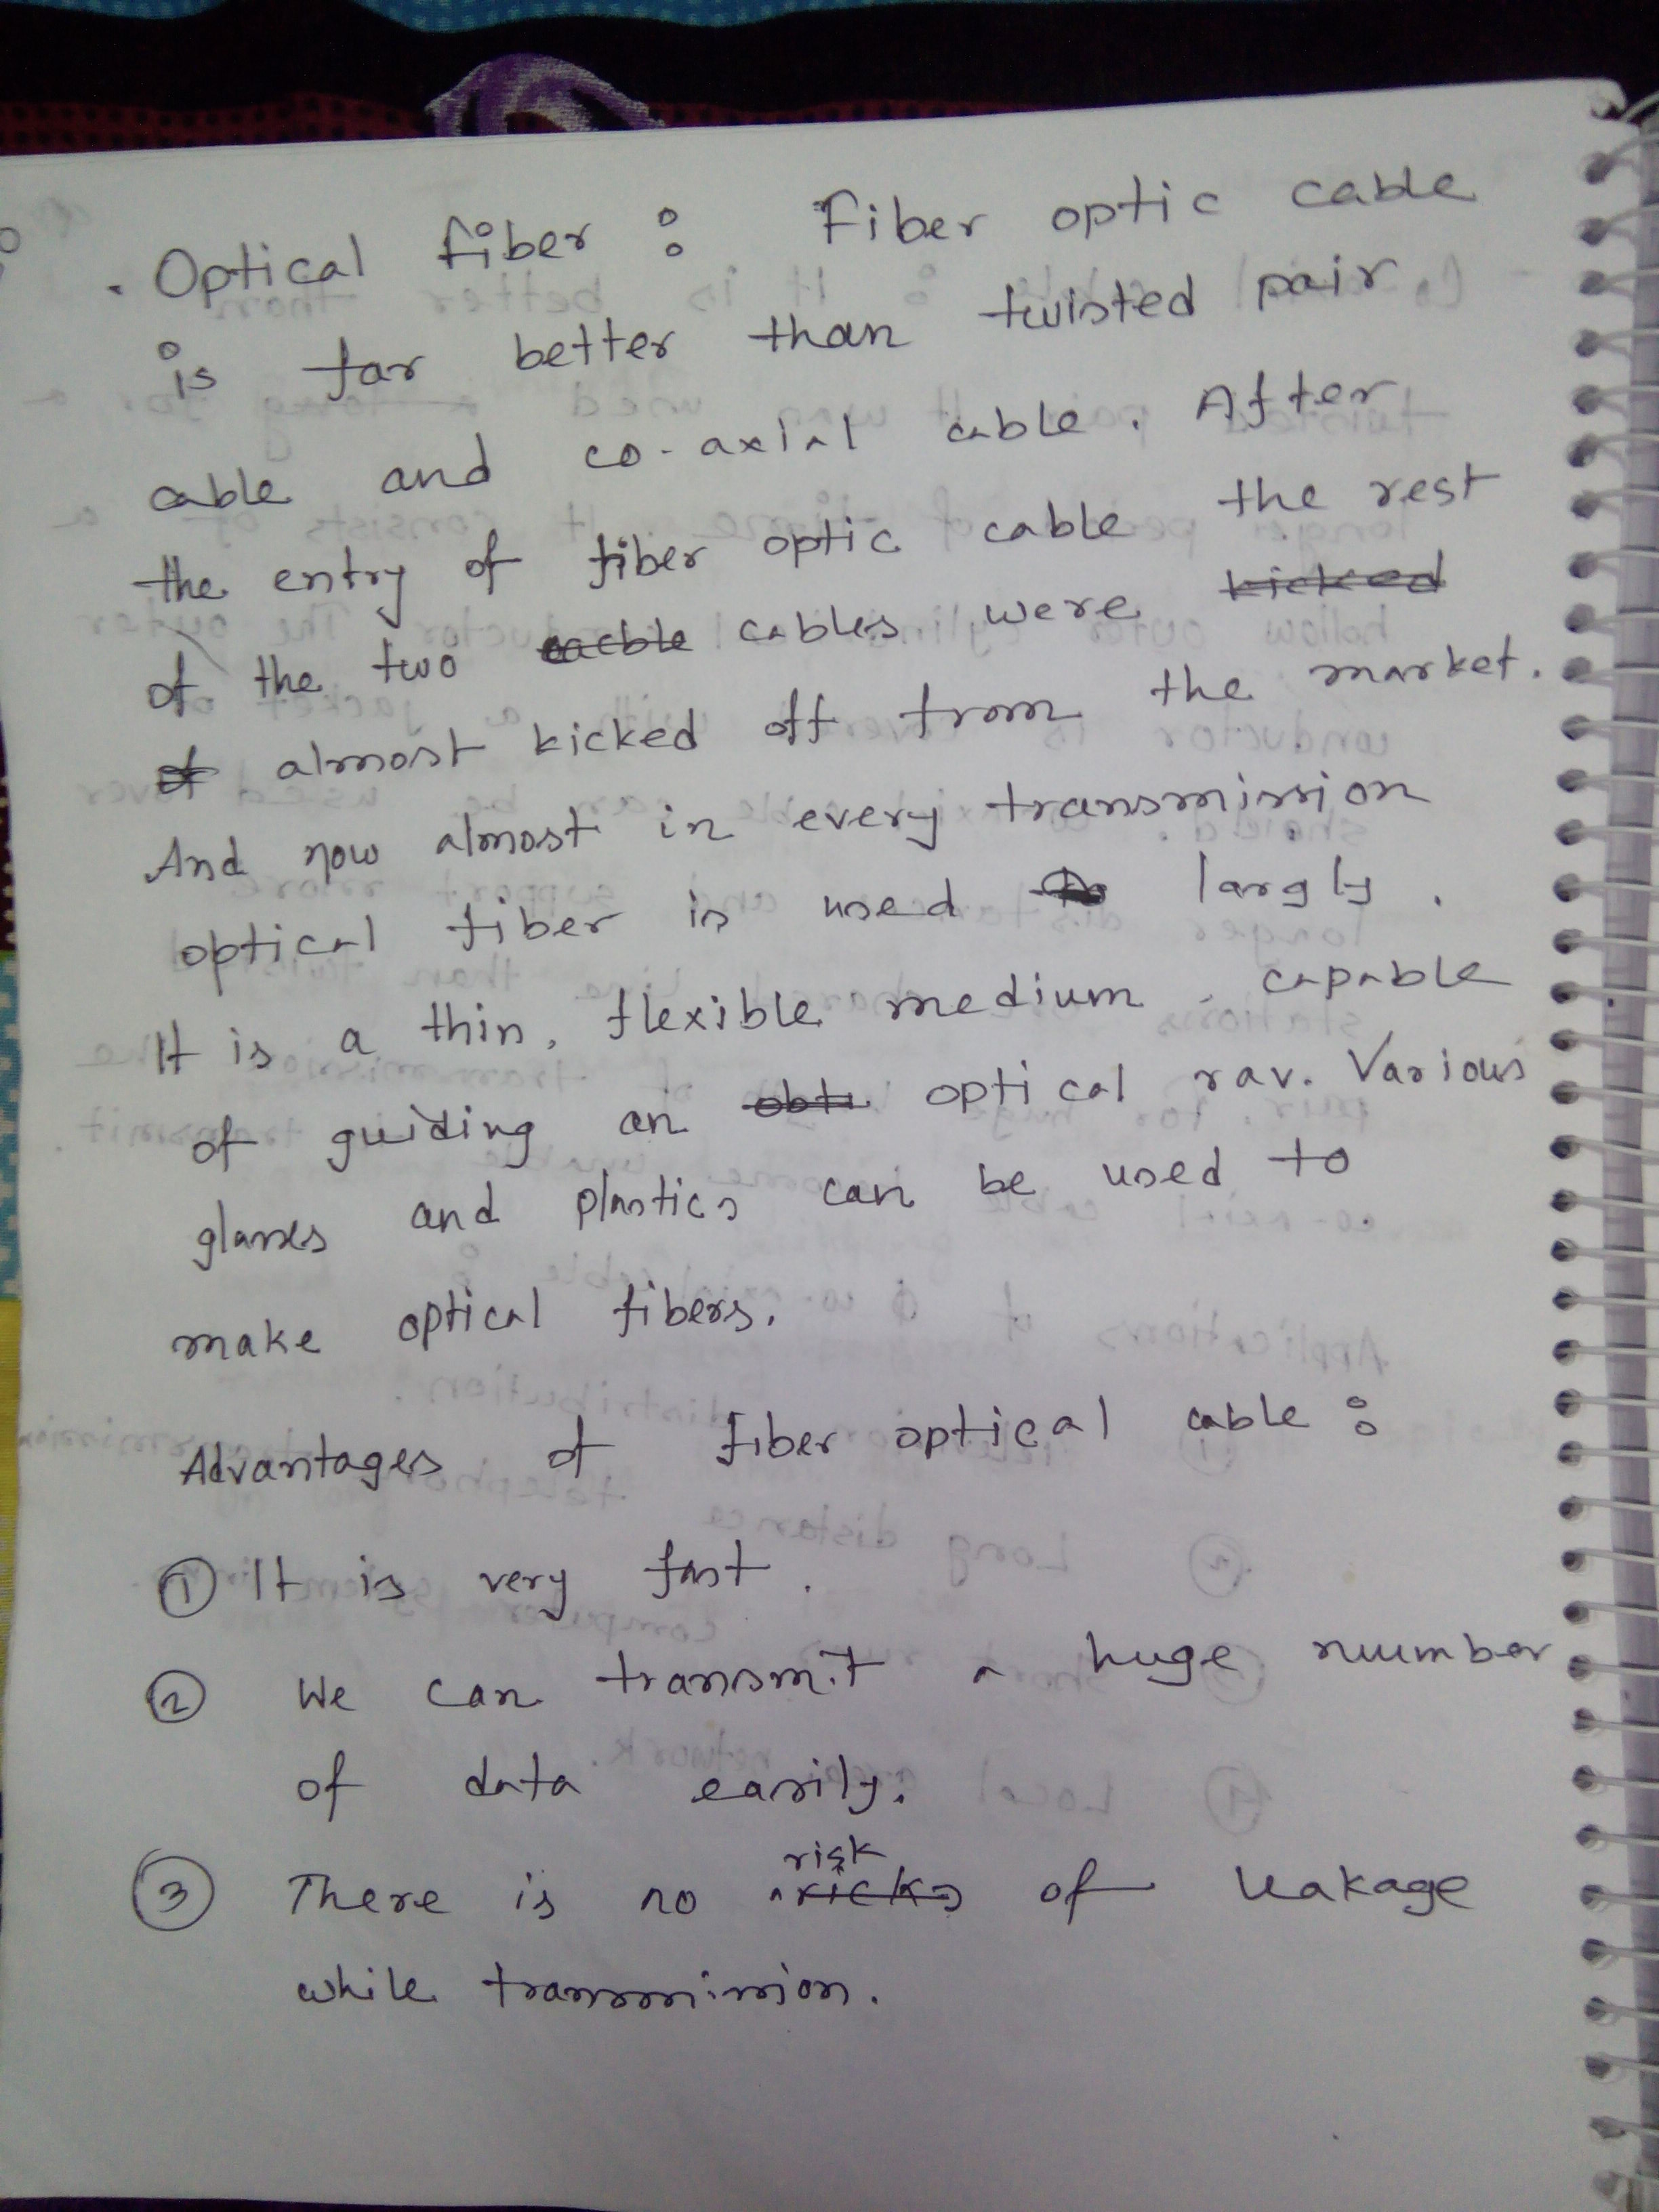 . Optical fiber : Fiber optic cable
is far better than twisted pair
cable and co-axial cable. After
the entry of fiber optic cable the rest
of the two cables were kicked
almost kicked off from the market.
And now almost in every transmission
optical fiber is used largly.
It is a thin, flexible medium capable
of guiding an optical rav. Various
glasses and plastics can be used to
make optical fibers.
Advantages of fiber optical cable :
① It is very fast.
② We can transmit a huge number
of data easily.
risk
③ There is no ricks of leakage
while transmission.